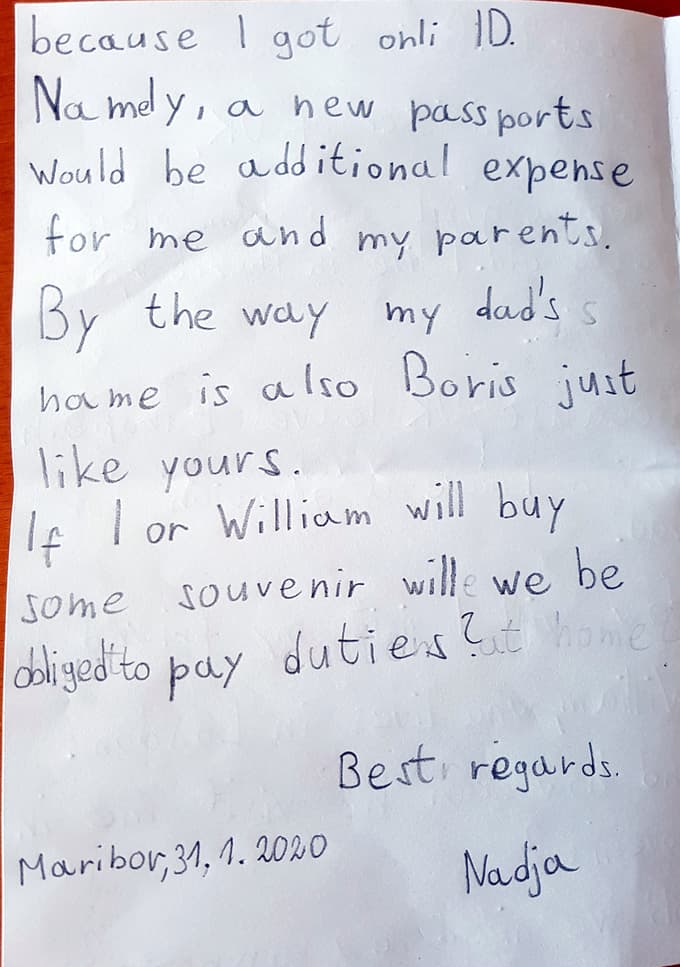 because I got onli ID.
Namely, a new passports
would be additional expense
for me and my parents.
By the way my dad's s
name is also Boris just
like yours.
If I or William will buy
some souvenir wille we be
obliged to pay duties? at home
Best regards.
Maribor, 31, 1. 2020
Nadja